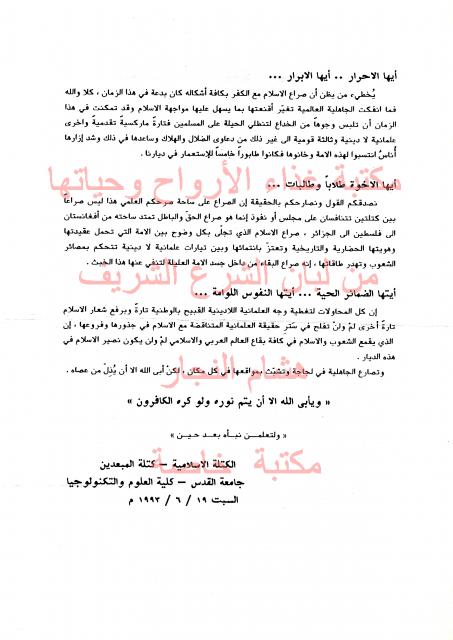 أيها الاحرار .. أيها الابرار ...
يُخطيء من يظن أن صراع الاسلام مع الكفر بكافة أشكاله كان بدعة في هذا الزمان ، كلا والله
فما انفكت الجاهلية العالمية تغيّر أقنعتها بما يسهل عليها مواجهة الاسلام وقد تمكنت في هذا
الزمان أن تلبس وجوهاً من الخداع لتنطلي الحيلة على المسلمين فتارةً ماركسية تقدمية واخرى
علمانية لا دينية وثالثة قومية الى غير ذلك من دعاوى الضلال والهلاك وساعدها في ذلك وشد إزارها
أُناسٌ انتسبوا لهذه الامة وخانوها فكانوا طابوراً خامساً للإستعمار في ديارنا .
مكتبة غذاء الأرواح وحياتها
أيها الاخوة طلاباً وطالبات ...
نصدقكم القول ونصارحكم بالحقيقة إن الصراع على ساحة صرحكم العلمي هذا ليس صراعاً
بين كتلتين تتنافسان على مجلس أو نفوذ إنما هو صراع الحق والباطل تمتد ساحته من أفغانستان
الى فلسطين الى الجزائر ، صراع الاسلام الذي تجلّى بكل وضوح بين الامة التي تحمل عقيدتها
وهويتها الحضارية والتاريخية وتعتزّ بانتمائها وبين تيارات علمانية لا دينية تتحكم بمصائر
الشعوب وتهدر طاقاتها ، إنه صراع البقاء من داخل جسد الامة العليلة لتنفي عنها هذا الخبث .
من لبان الشرع الشريف
أيتها الضمائر الحية ... أيتها النفوس اللوامة ...
إن كل المحاولات لتغطية وجه العلمانية اللادينية القبيح بالوطنية تارةً وبرفع شعار الاسلام
تارةً أخرى لمْ ولنْ تفلح في سَترِ حقيقة العلمانية المتناقضة مع الاسلام في جذورها وفروعها ، إن
الذي يقمع الشعوب والاسلام في كافة بقاع العالم العربي والاسلامي لمْ ولن يكون نصير الاسلام في
هذه الديار .
وتصارع الجاهلية في لجاجة وتشبّث بمواقعها في كل مكان ، لكنْ أبى الله الا أن يُذِلّ من عصاه .
هشام النجار
« ويأبى الله الا أن يتم نوره ولو كره الكافرون »
« ولتعلمــن نبـأه بعـد حيـن »
الكتلة الاسلامية – كتلة المبعدين
مكتبة خاصة
جامعة القدس – كلية العلوم والتكنولوجيا
السبت ١٩ / ٦ / ١٩٩٣ م